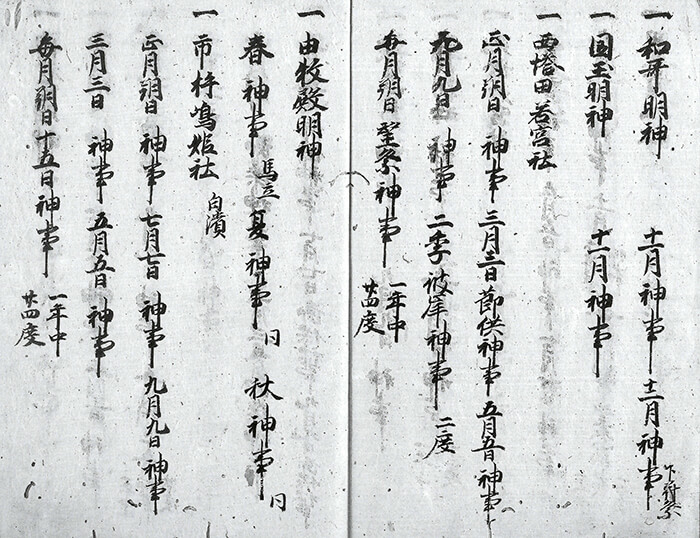 一 和哥明神 十一月神事 十二月神事 下符祭
一 国玉明神 十一月神事
一 西塔田若宮社
正月朔日 神事 三月三日節供神事 五月五日神事
九月九日 神事 二季彼岸神事 二度
毎月朔日 聖祭神事 一年中廿四度
一 由牧殿明神
春神事 馬立 夏神事 同 秋神事 同
一 市杵嶋姫社 白濱
正月朔日 神事 七月七日 神事 九月九日神事
三月三日 神事 五月五日 神事
毎月朔日十五日神事 一年中廿四度